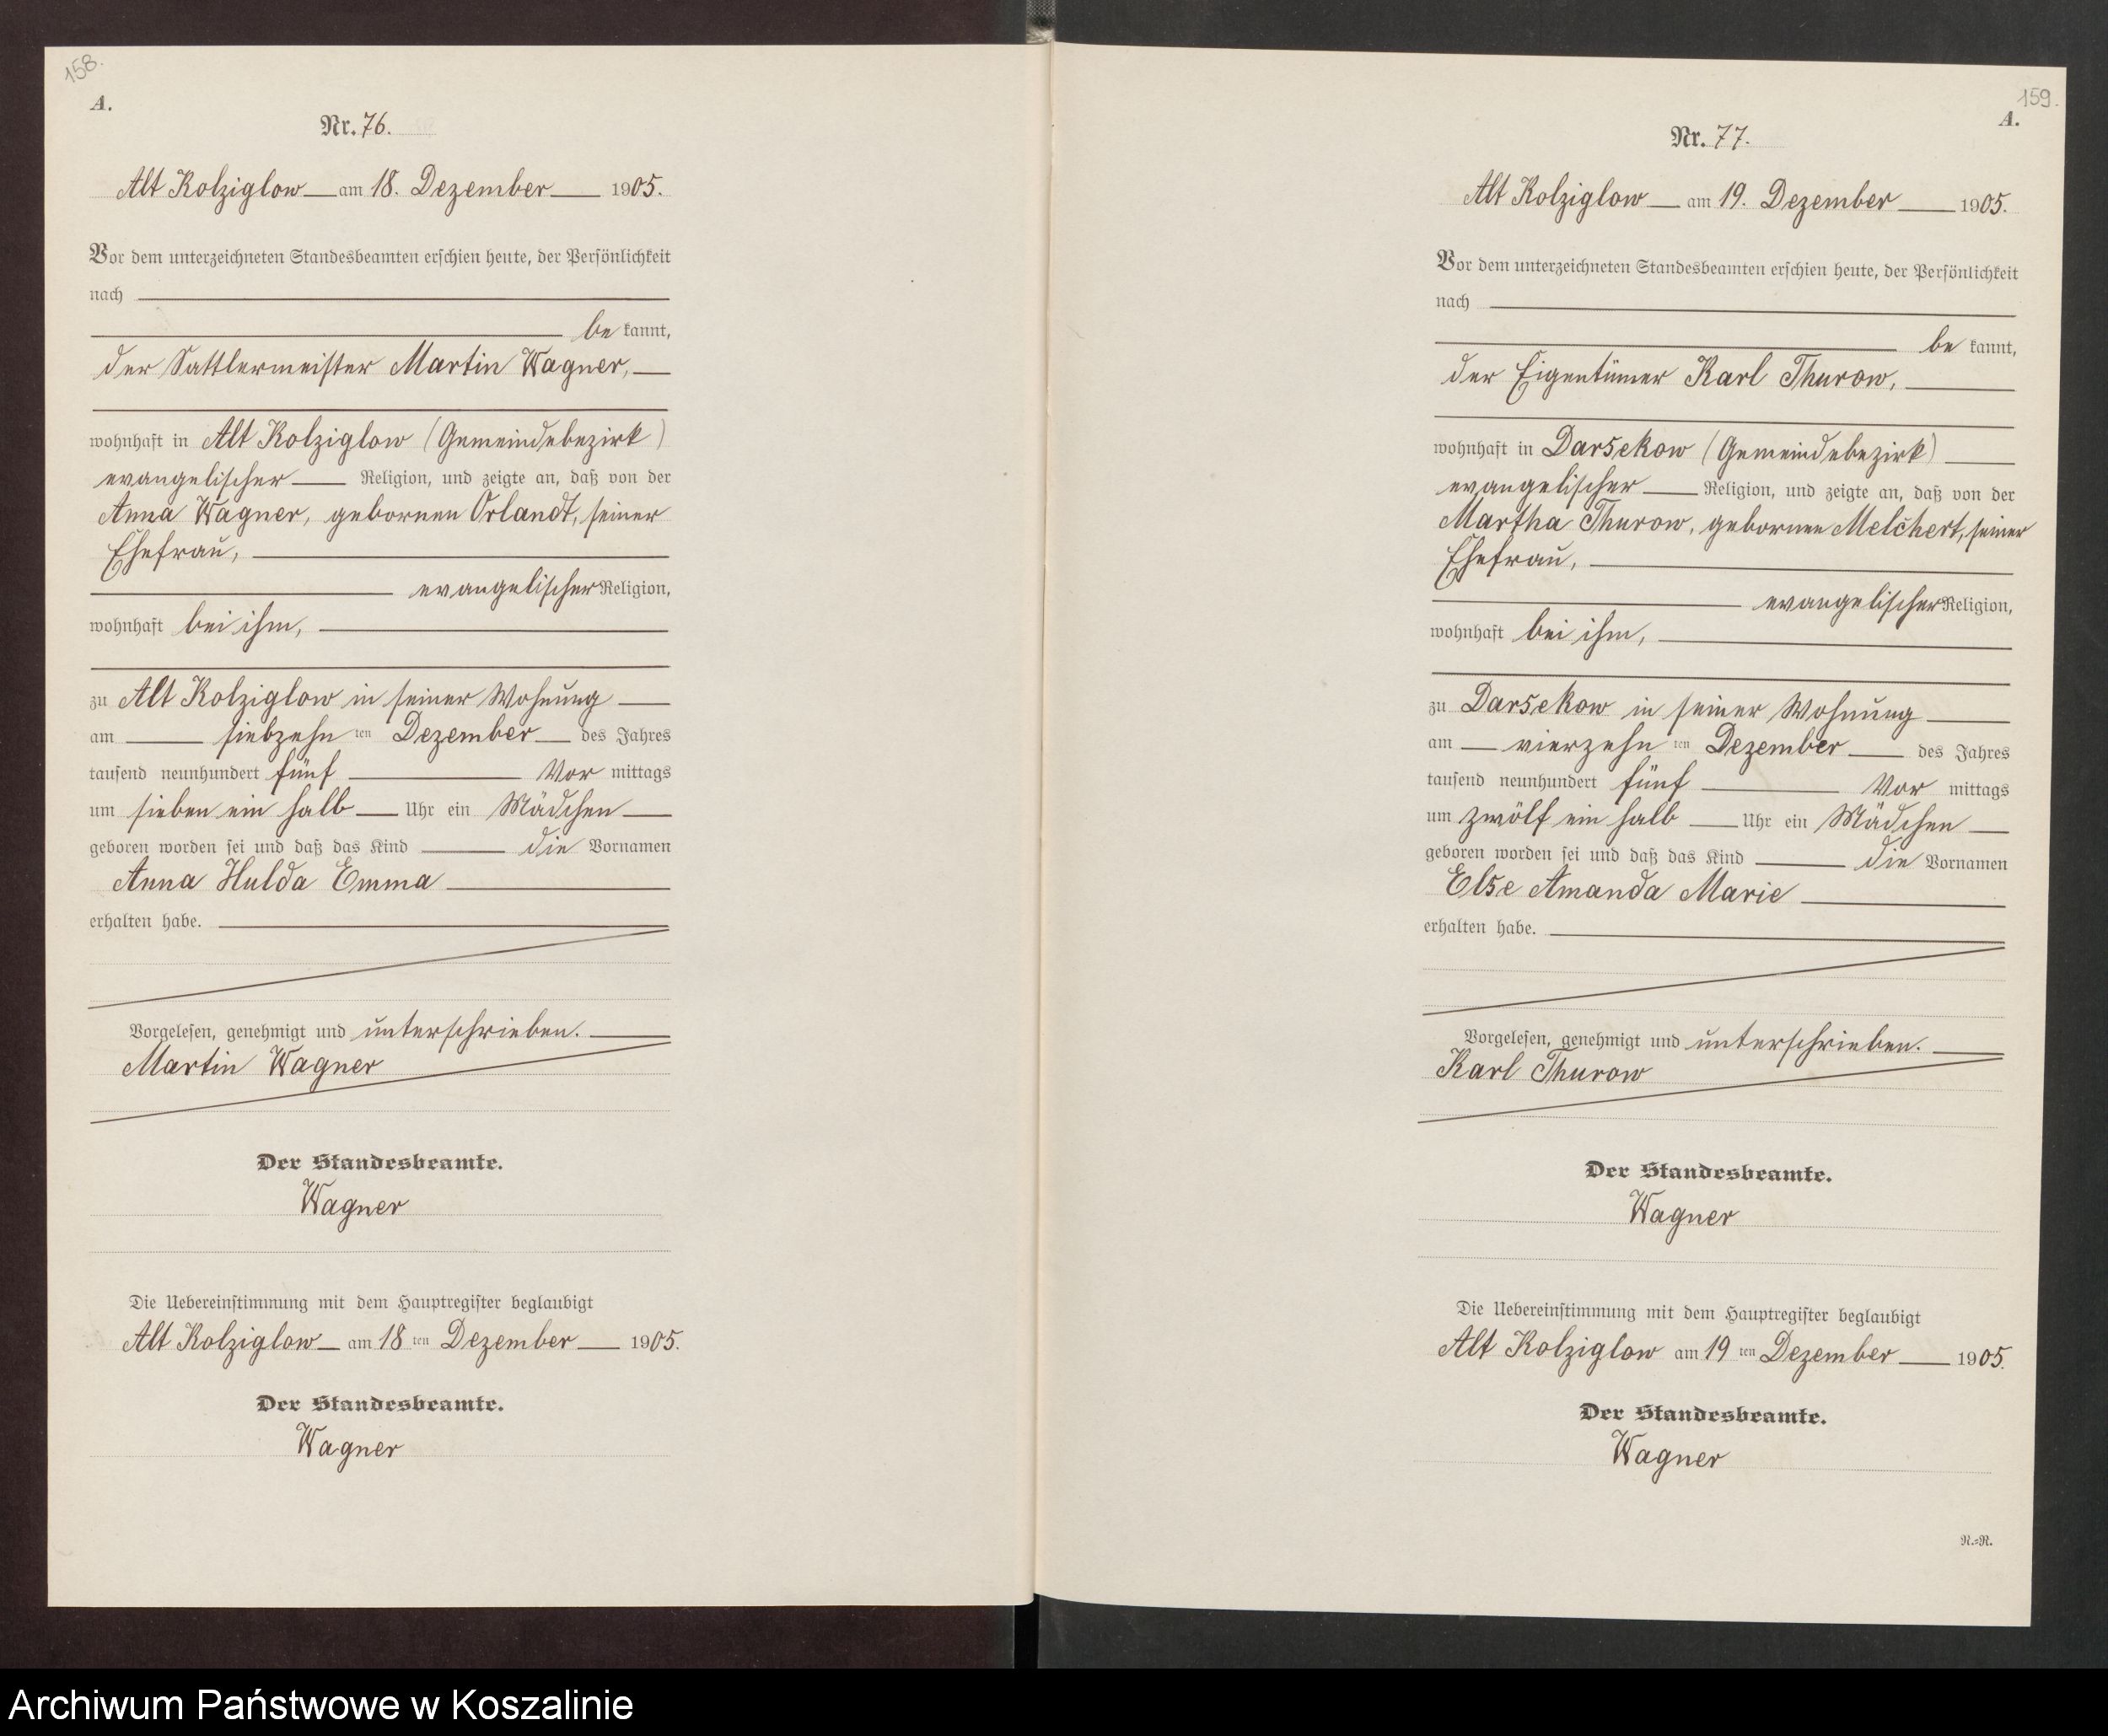 158.
A.
Nr. 76.
Alt Kolziglow am 18. Dezember 1905.
Vor dem unterzeichneten Standesbeamten erschien heute, der Persönlichkeit
nach
be kannt,
der Sattlermeister Martin Wagner,
wohnhaft in Alt Kolziglow (Gemeindebezirk)
evangelischer Religion, und zeigte an, daß von der
Anna Wagner, gebornen Orlandt, seiner
Ehefrau,
evangelischer Religion,
wohnhaft bei ihm,
zu Alt Kolziglow in seiner Wohnung
am siebzehn ten Dezember des Jahres
tausend neunhundert fünf Vor mittags
um sieben ein halb Uhr ein Mädchen
geboren worden sei und daß das Kind die Vornamen
Anna Hulda Emma
erhalten habe.
Vorgelesen, genehmigt und unterschrieben.
Martin Wagner
Der Standesbeamte.
Wagner
Die Uebereinstimmung mit dem Hauptregister beglaubigt
Alt Kolziglow am 18 ten Dezember 1905.
Der Standesbeamte.
Wagner
159.
A.
Nr. 77.
Alt Kolziglow am 19. Dezember 1905.
Vor dem unterzeichneten Standesbeamten erschien heute, der Persönlichkeit
nach
be kannt,
der Eigentümer Karl Thurow,
wohnhaft in Darsekow (Gemeindebezirk)
evangelischer Religion, und zeigte an, daß von der
Martha Thurow, gebornen Melchert, seiner
Ehefrau,
evangelischer Religion,
wohnhaft bei ihm,
zu Darsekow in seiner Wohnung
am vierzehn ten Dezember des Jahres
tausend neunhundert fünf Vor mittags
um zwölf ein halb Uhr ein Mädchen
geboren worden sei und daß das Kind die Vornamen
Else Amanda Marie
erhalten habe.
Vorgelesen, genehmigt und unterschrieben.
Karl Thurow
Der Standesbeamte.
Wagner
Die Uebereinstimmung mit dem Hauptregister beglaubigt
Alt Kolziglow am 19 ten Dezember 1905.
Der Standesbeamte.
Wagner
N.=R.
Archiwum Państwowe w Koszalinie